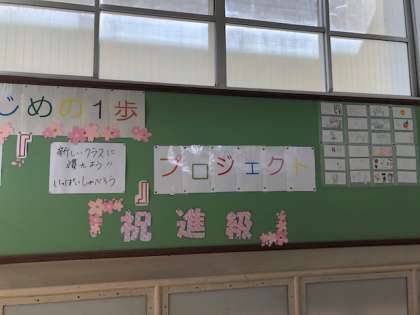 じめの1歩
『
新しいクラスに
慣れよう!!
いっぱいしゃべろう
』
プロジェクト
祝進級